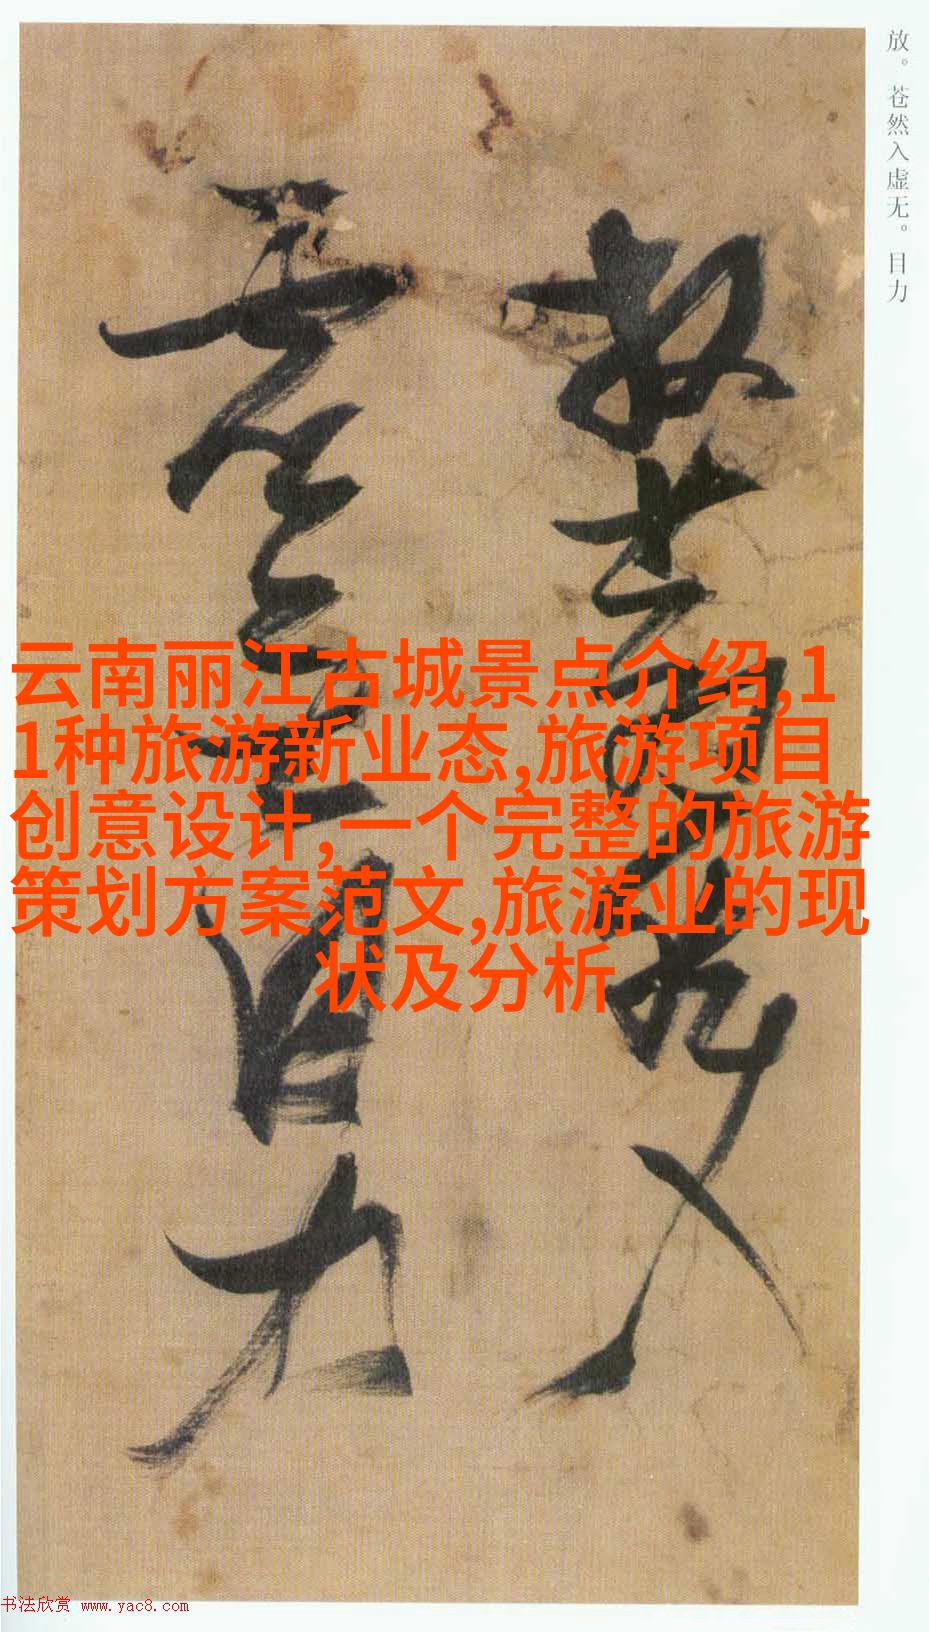 放。苍然入虚无。目力
放苍然入
虚无目力
云南丽江古城景点介绍,1
1种旅游新业态,旅游项目
创意设计,一个完整的旅游
策划方案范文,旅游业的现
状及分析
书法欣赏 www.yac8.com